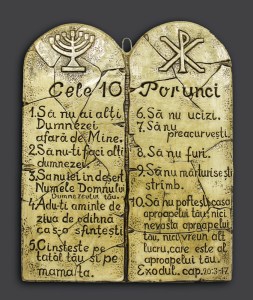 Cele 10 Porunci
1.Să nu ai alți
Dumnezei
afară de Mine.
2.Să nu-ți faci alți
dumnezei.
3.Să nu iei în deșert
Numele Domnului
Dumnezeului tău.
4.Adu-ți aminte de
ziua de odihnă
ca s-o sfințești
5.Cinstește pe
tatăl tău și pe
mama ta.
6.Să nu ucizi.
7.Să nu
preacurvești.
8.Să nu furi.
9.Să nu mărturisești
strîmb.
10.Să nu poftești casa
aproapelui tău, nici
nevasta aproapelui
tău, nici vreun alt
lucru, care este al
aproapelui tău.
Exodul.. cap. 20:3-17